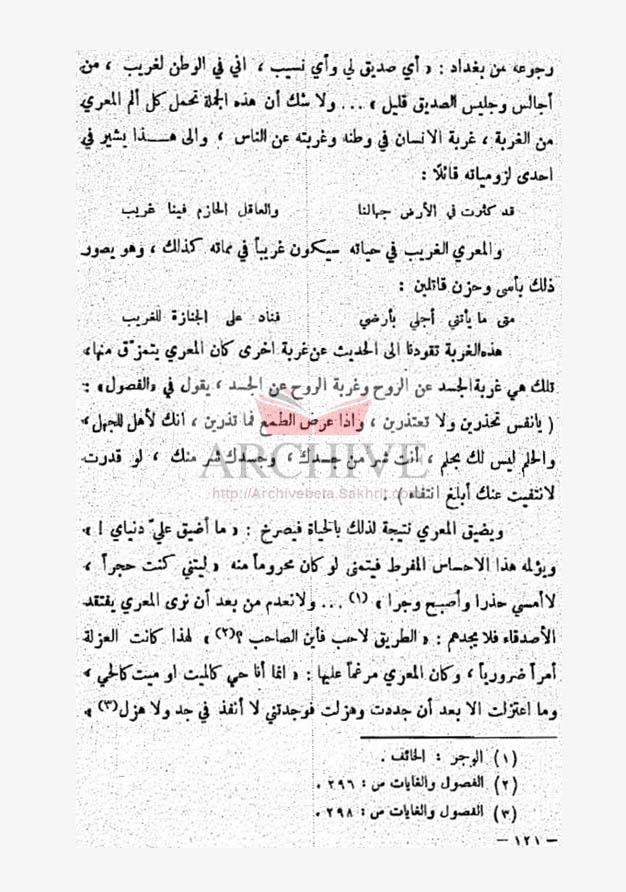 رجوعه من بغداد : « أي صديق لي وأي نسيب ، اني في الوطن لغريب ، من
أجالس وجليس الصديق قليل » ... ولا شك أن هذه الجملة تحمل كل ألم المعري
من الغربة ، غربة الانسان في وطنه وغربته عن الناس ، والى هـــذا يشير في
احدى لزومياته قائلًا :
قد كثرت في الأرض جهالنا والعاقل الحازم فينا غريب
والمعري الغريب في حياته سيكون غريباً في مماته كذلك ، وهو يصور
ذلك بأسى وحزن قاتلين :
متى ما يأتني أجلي بأرضي فناد على الجنازة للغريب
هذه الغربة تقودنا الى الحديث عن غربة اخرى كان المعري يتمزق منها،
تلك هي غربة الجسد عن الروح وغربة الروح عن الجسد ، يقول في «الفصول» :
( يانفس تحذرين ولا تعتذرين ، واذا عرض الطمع فما تذرين ، انك لأهل للجهل،
والحلم ليس لك بحلم ، أنت شر من جسدك ، وجسدك شر منك ، لو قدرت
لانتفيت عنك أبلغ انتفاء )
ARCHIVE
http://Archivebeta.Sakhrit.com
ويضيق المعري نتيجة لذلك بالحياة فيصرخ : « ما أضيق عليّ دنياي ! »،
ويؤلمه هذا الاحساس المفرط فيتمنى لو كان محروماً منه « ليتني كنت حجراً ،
لا أمسي حذرا وأصبح وجرا » (١) ... ولا نعدم من بعد أن نرى المعري يفتقد
الأصدقاء فلا يجدهم : « الطريق لاحب فأين الصاحب ؟(٢) » لهذا كانت العزلة
أمراً ضرورياً ، وكان المعري مرغماً عليها : « انما أنا حي كالميت او ميت كالحي ،
وما اعتزلت الا بعد أن جددت وهزلت فوجدتني لا أنفذ في جد ولا هزل(٣) »
(١) الوجر : الخائف .
(٢) الفصول والغايات ص : ٢٩٦ .
(٣) الفصول والغايات ص : ٢٩٨ .
– ١٢١ –